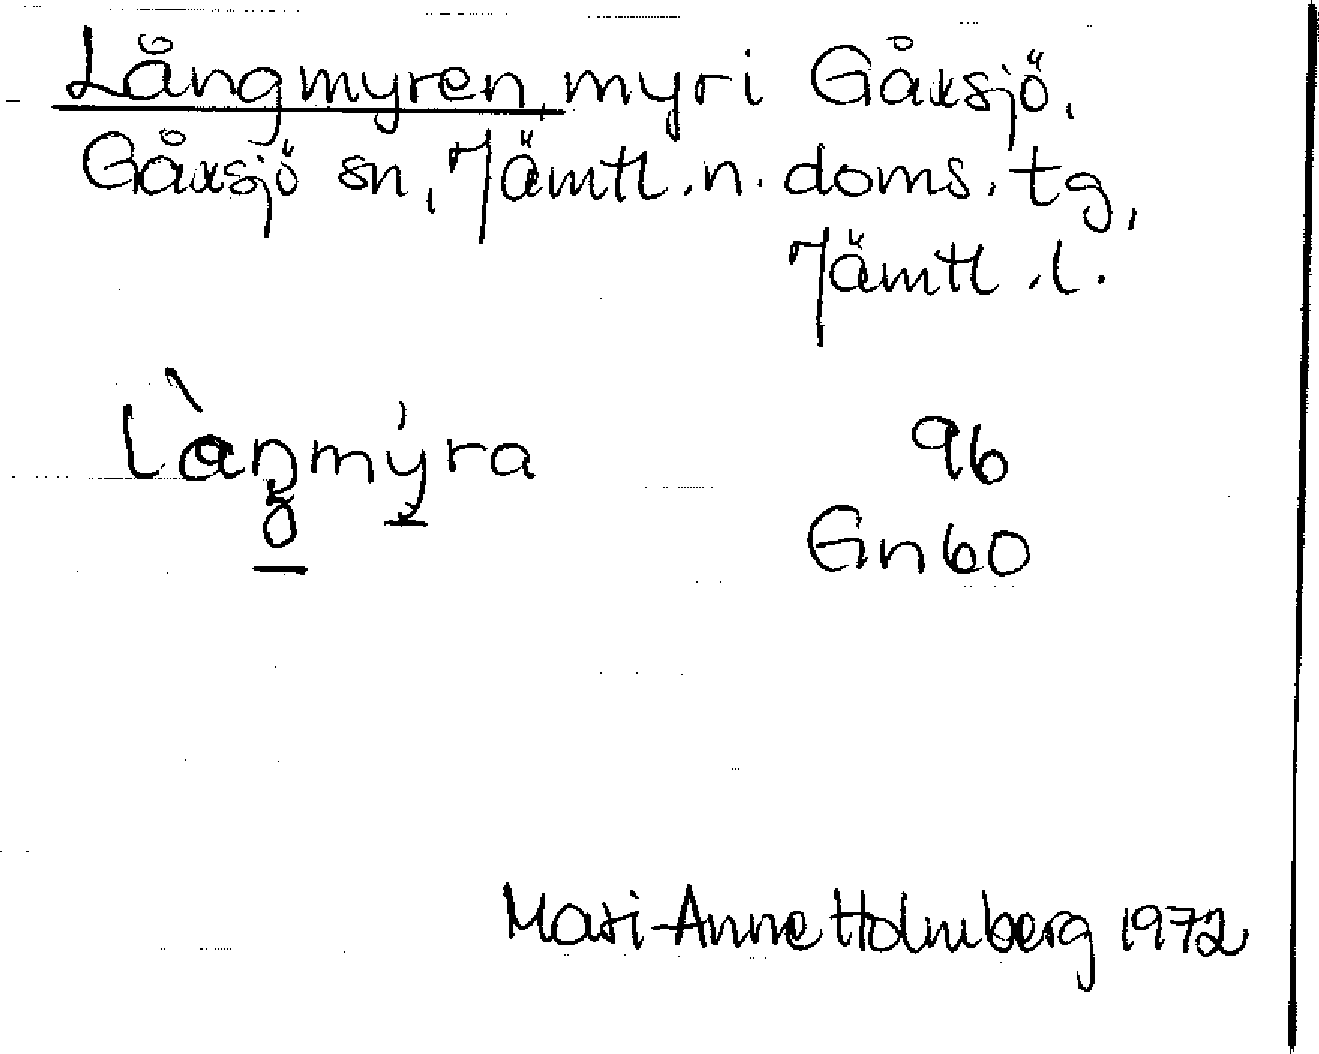 Långmyren, myr i Gåxsjö,
Gåxsjö sn, Jämtl. n. doms. tg,
Jämtl. l.
96
Gn 60
Mari-Anne Holmberg 1972